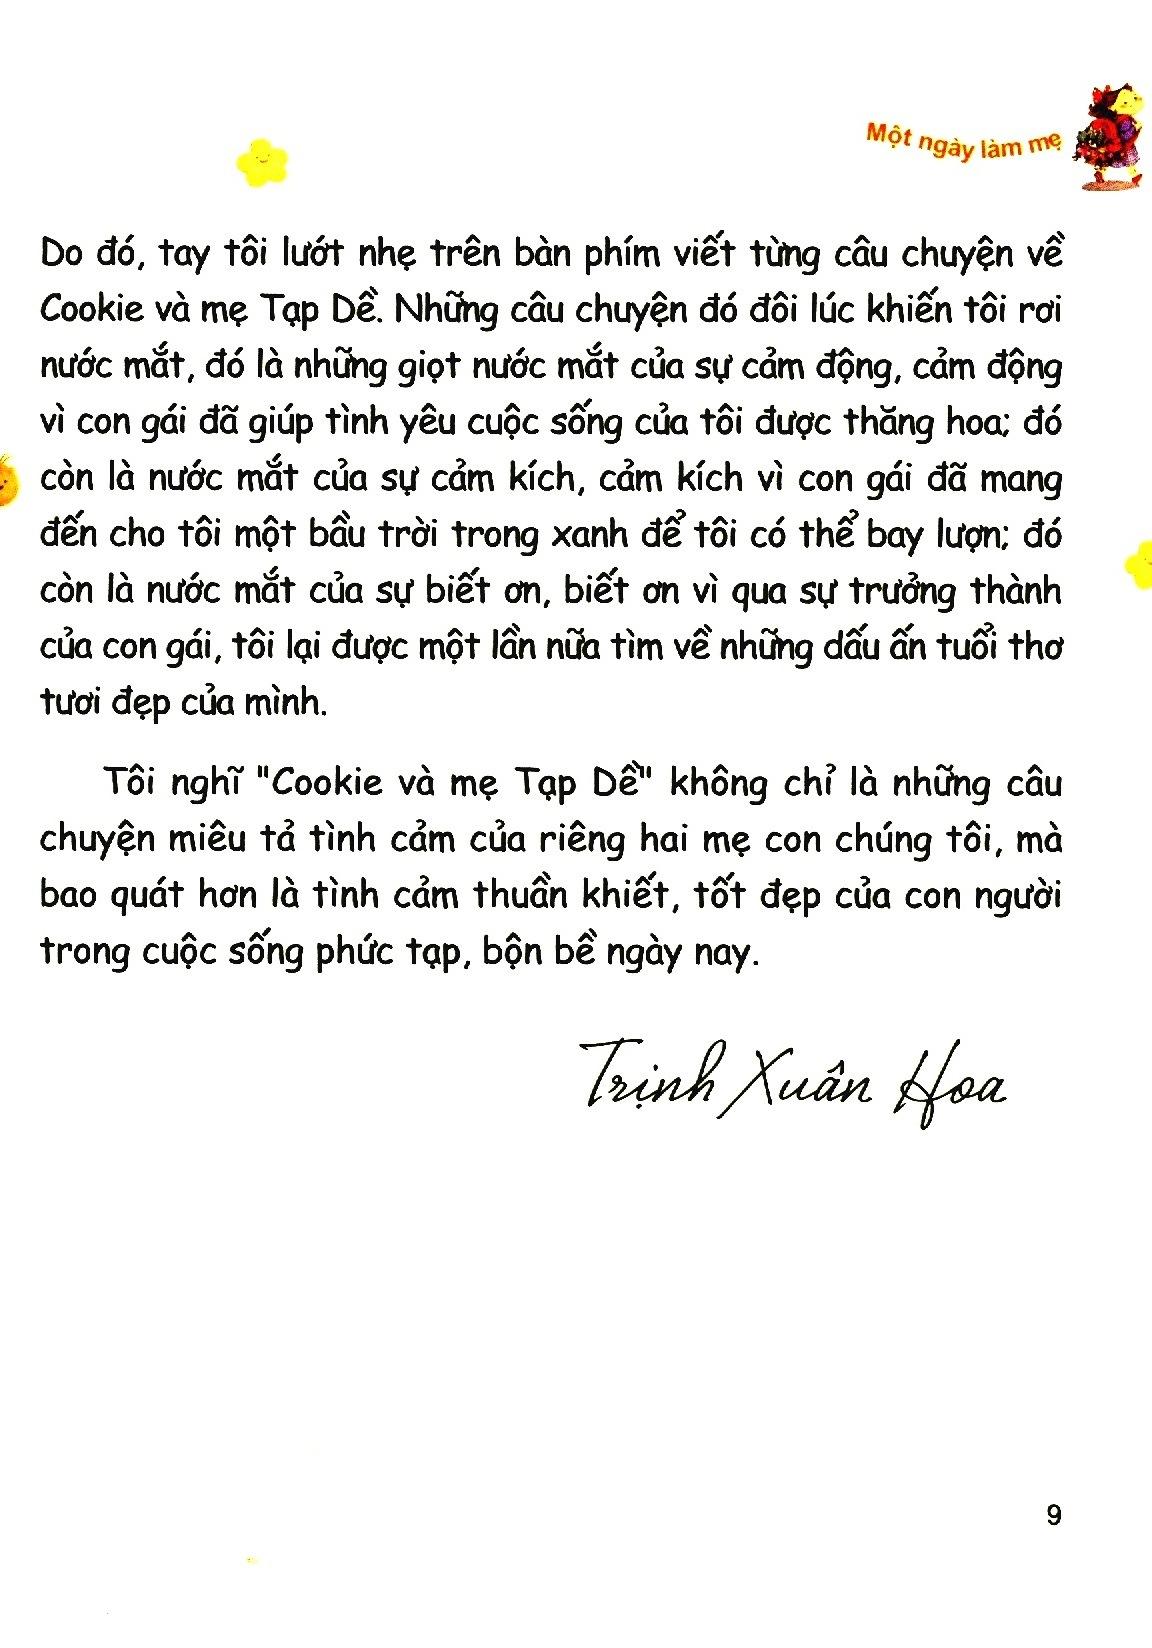 Một ngày làm mẹ
Do đó, tay tôi lướt nhẹ trên bàn phím viết từng câu chuyện về
Cookie và mẹ Tạp Dề. Những câu chuyện đó đôi lúc khiến tôi rơi
nước mắt, đó là những giọt nước mắt của sự cảm động, cảm động
vì con gái đã giúp tình yêu cuộc sống của tôi được thăng hoa; đó
còn là nước mắt của sự cảm kích, cảm kích vì con gái đã mang
đến cho tôi một bầu trời trong xanh để tôi có thể bay lượn; đó
còn là nước mắt của sự biết ơn, biết ơn vì qua sự trưởng thành
của con gái, tôi lại được một lần nữa tìm về những dấu ấn tuổi thơ
tươi đẹp của mình.
Tôi nghĩ "Cookie và mẹ Tạp Dề" không chỉ là những câu
chuyện miêu tả tình cảm của riêng hai mẹ con chúng tôi, mà
bao quát hơn là tình cảm thuần khiết, tốt đẹp của con người
trong cuộc sống phức tạp, bộn bề ngày nay.
Trịnh Xuân Hoa
9